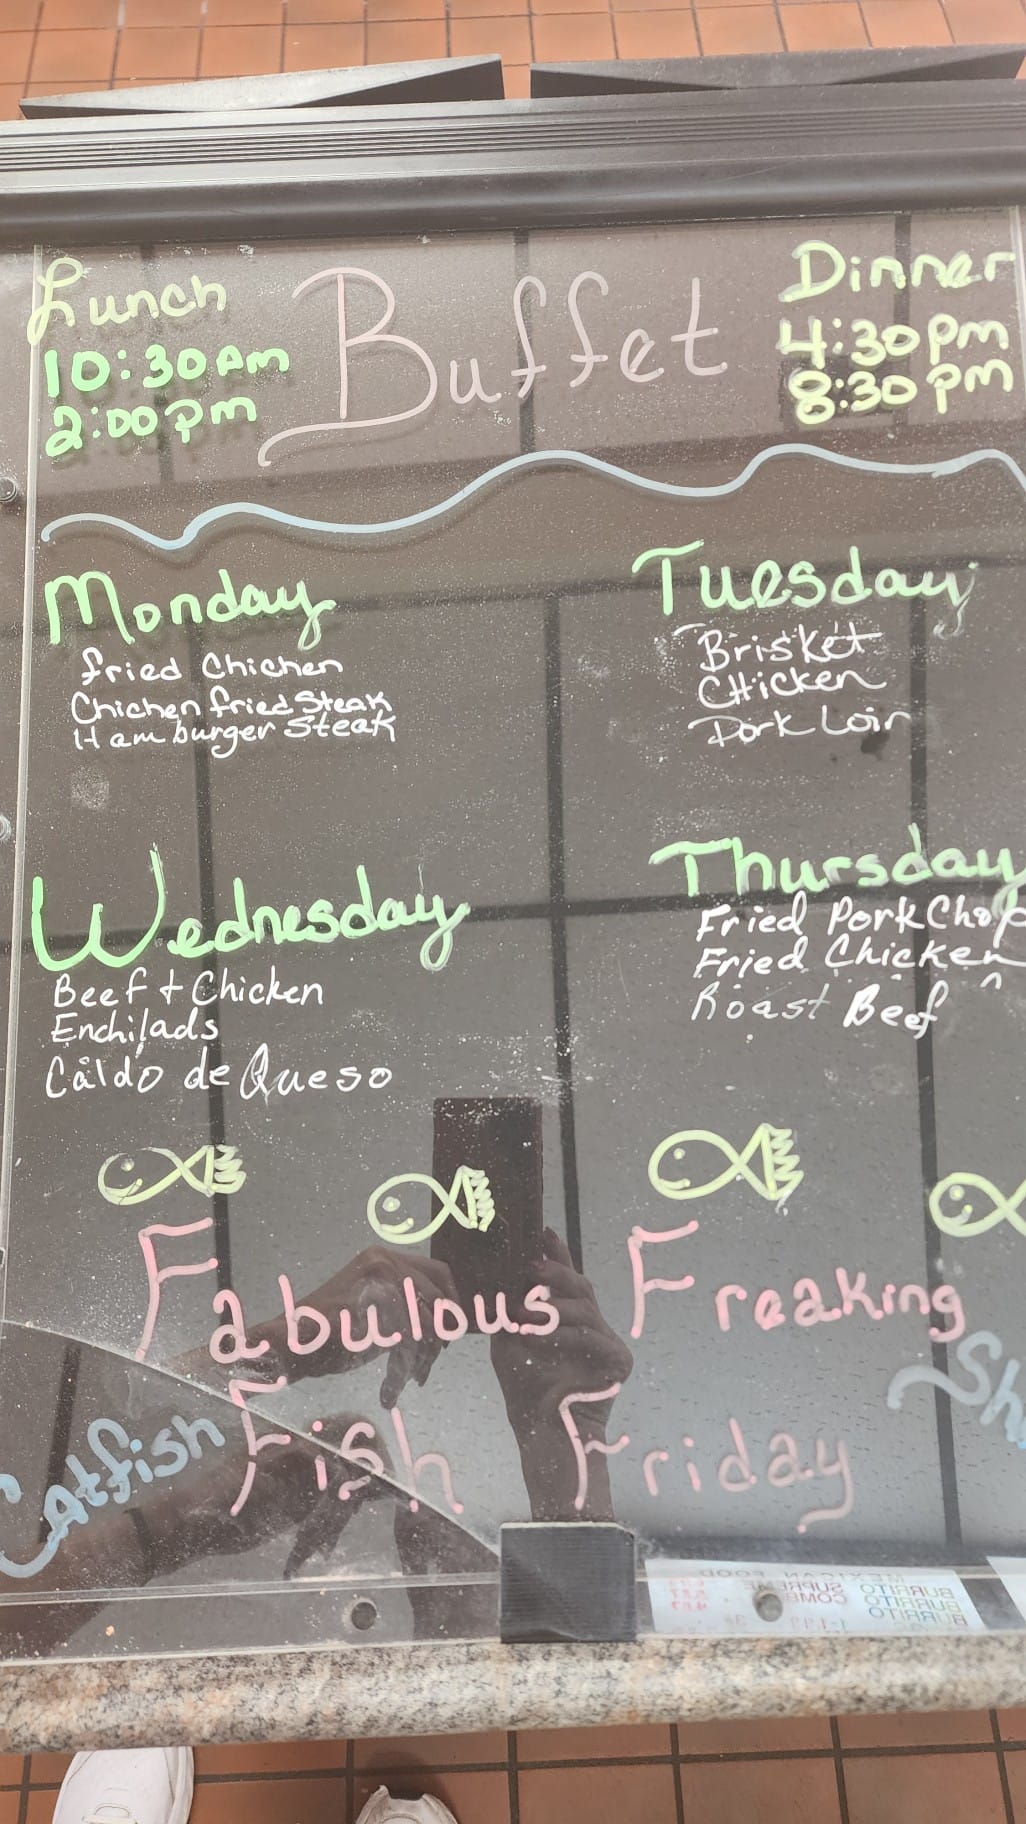 Lunch
10:30 Am
2:00 pm
Buffet
Dinner
4:30 pm
8:30 pm
Monday
fried Chichen
Chichen fried Steak
Hamburger Steak
Tuesday
Brisket
CHicken
Pork Loin
Wednesday
Beef + Chicken
Enchilads
Caldo de Queso
Thursday
Fried Pork Chop
Fried Chicken
Roast Beef
Fabulous Freaking
Fish Friday
Catfish
MEXICAN FOOD
BURRITO SUPREME
BURRITO COMB
BURRITO